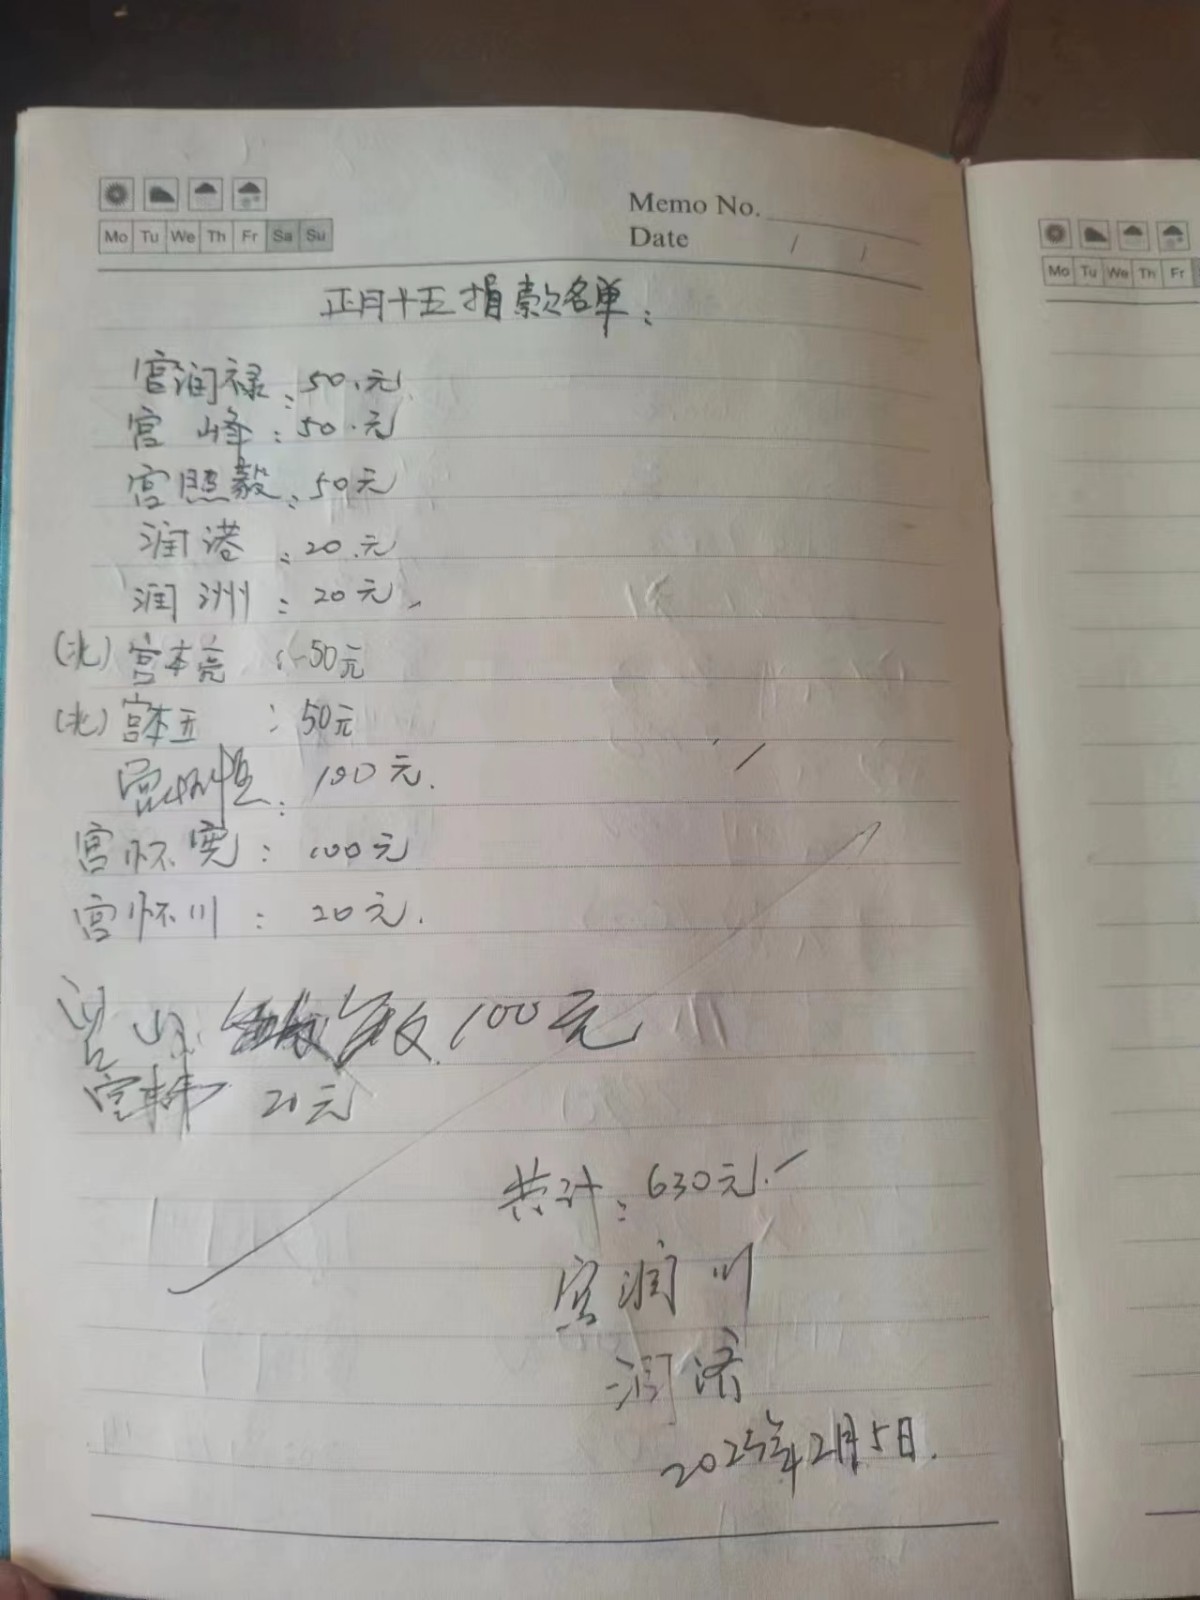 Memo No.
Date / /
Mo Tu We Th Fr Sa Su
正月十五捐款名单:
宫润禄:50.元
宫 峰:50.元
宫照毅:50元
润港:20.元
润洲:20元
(北)宫本亮:50元
(北)宫本五:50元
宫 100元.
宫怀宪:100元
宫怀川:20元.
100元
宫 20元
共计:630元.
宫润川
润济
2025年2月5日.
Mo Tu We Th Fr